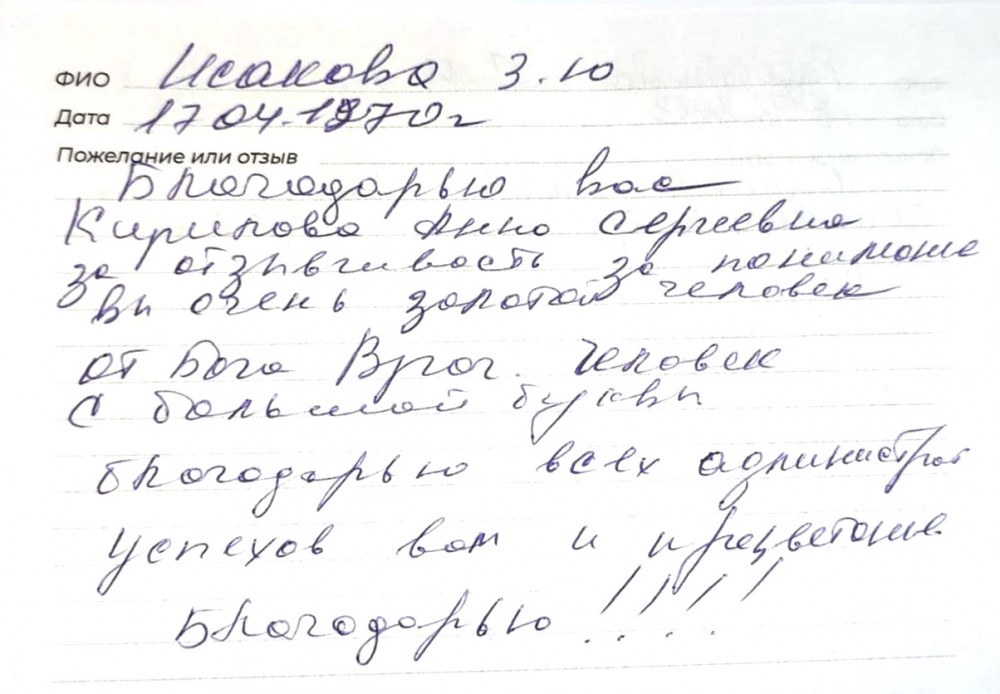 ФИО Исакова З.Ю
Дата 17.04.1970г
Пожелание или отзыв
Благодарью вас
Кирилова Анна Сергеевна
за отзывчивость за понимание
Вы очень золотой человек
от Бога Врач. Человек
с большой буквы
благодарью всех администрат
Успехов вам и процветание
Благодарью !!!!